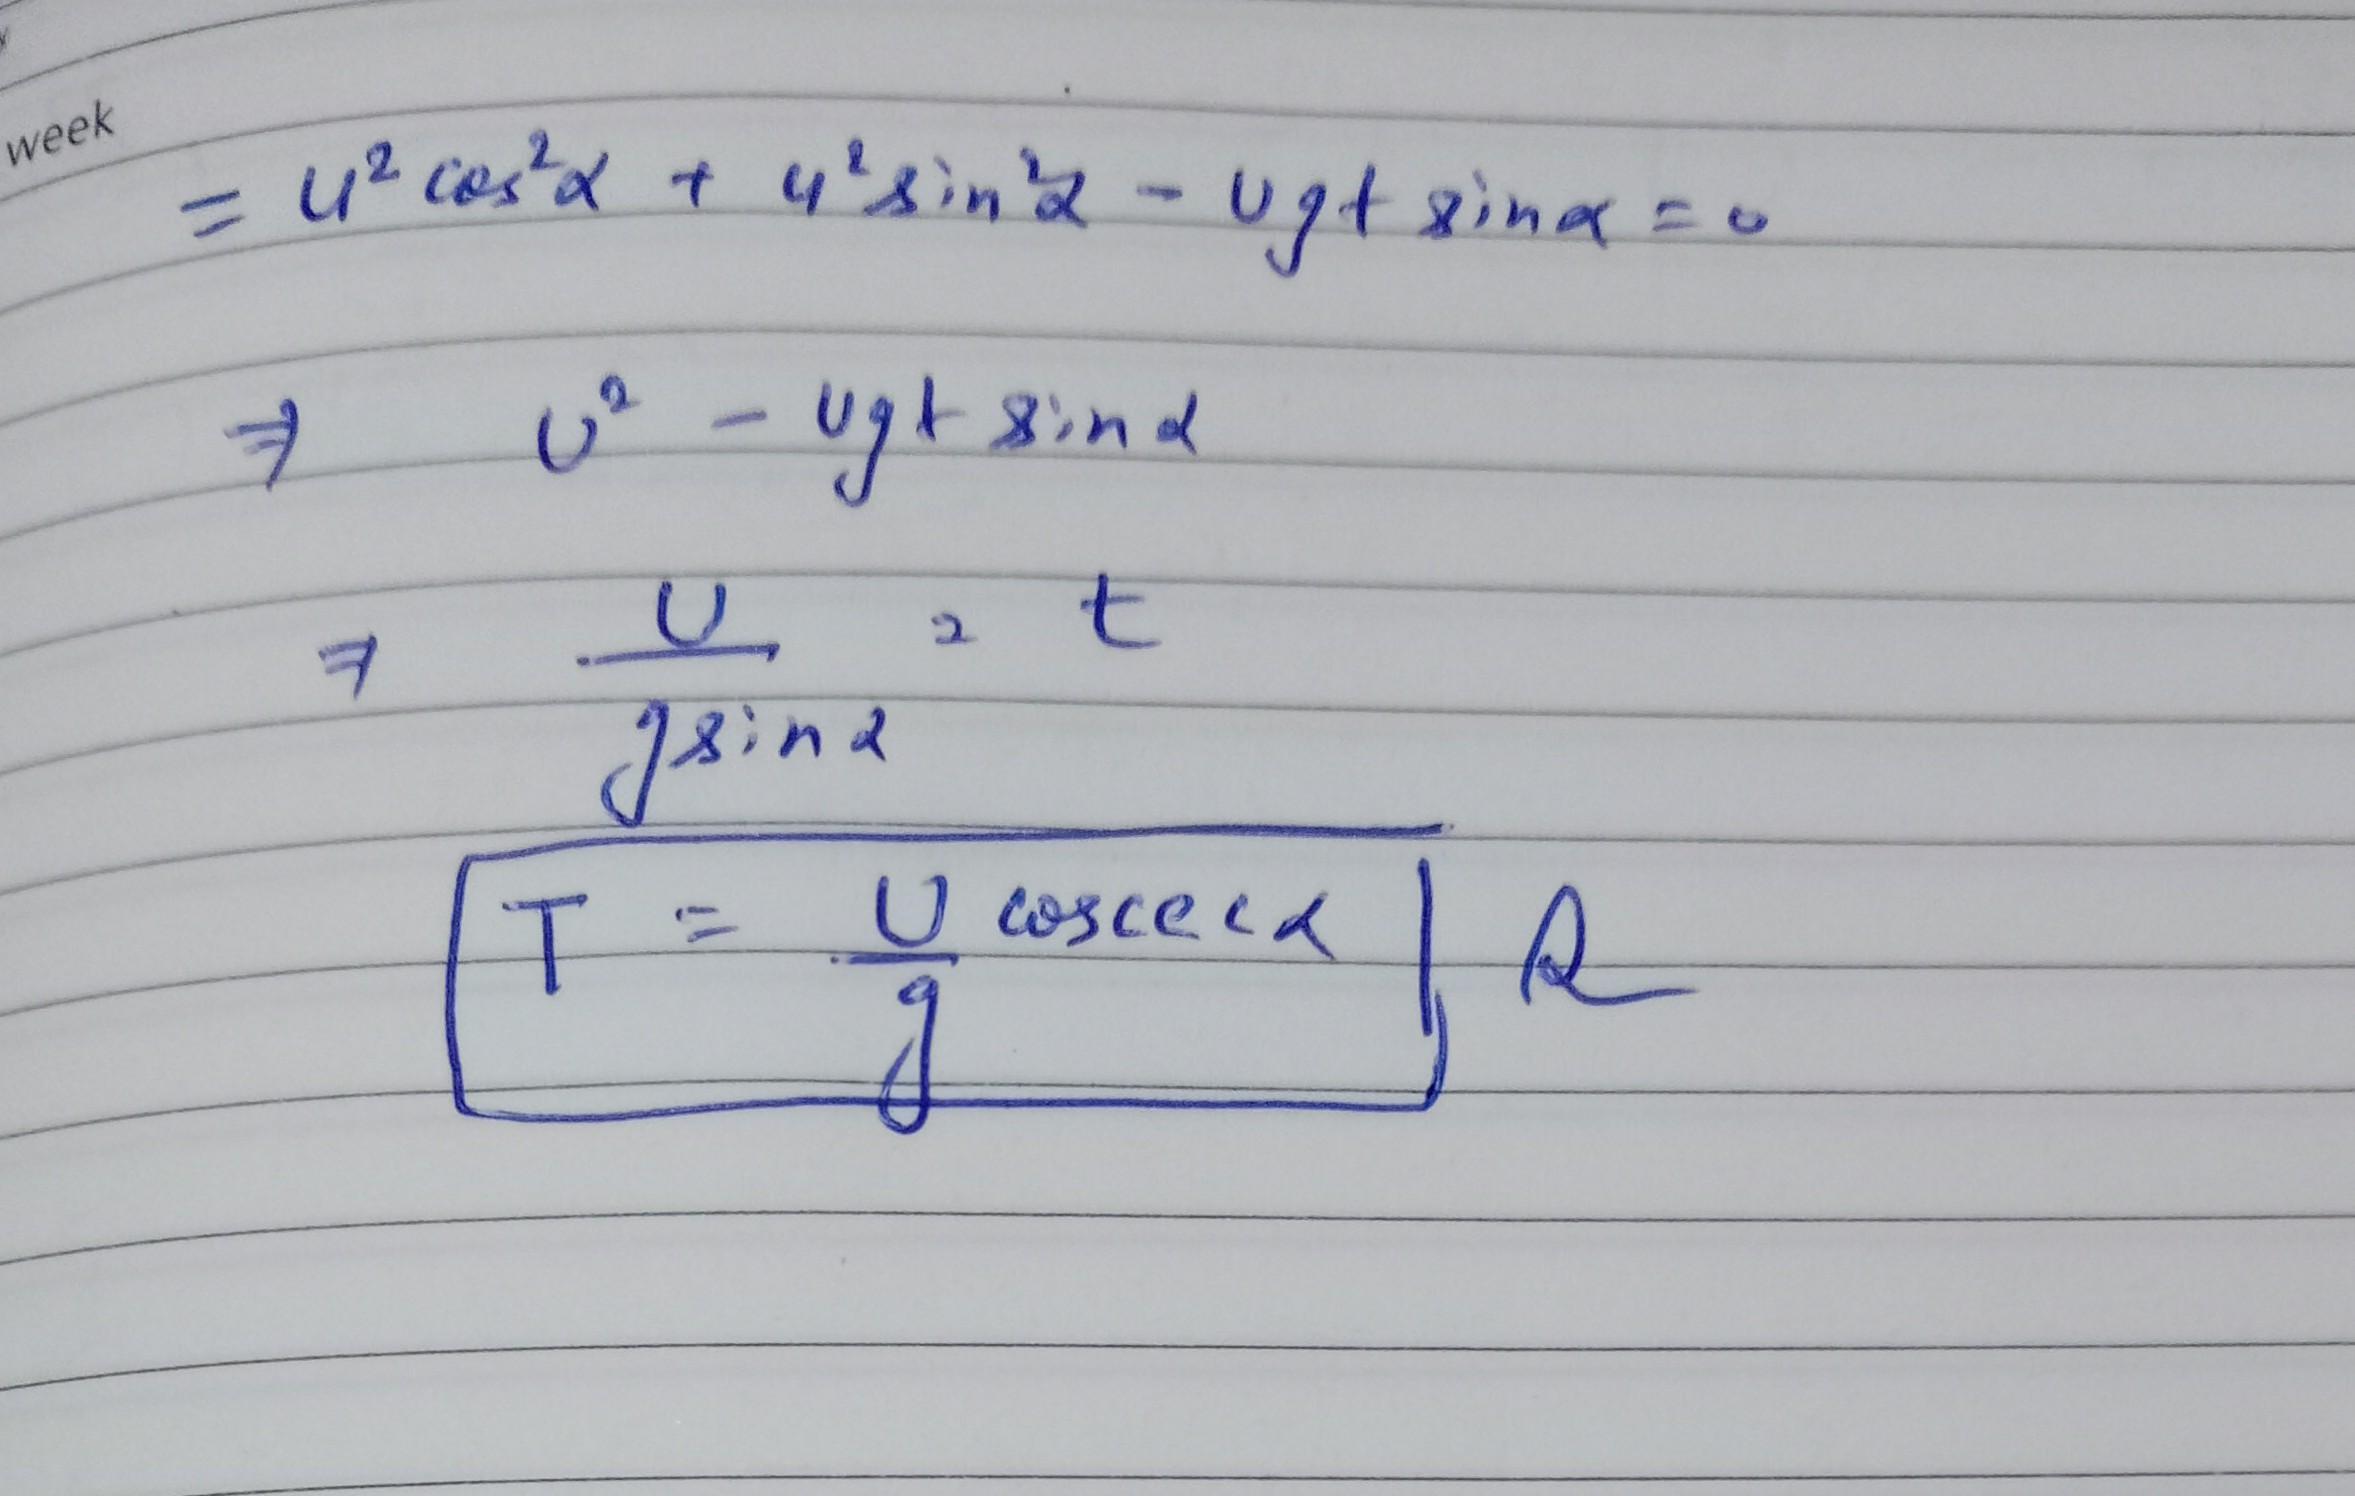 week
= u² cos²α + u² sin²α - ugt sinα = 0
⇒ u² - ugt sinα
⇒ u / g sinα = t
T = u/g coscecα